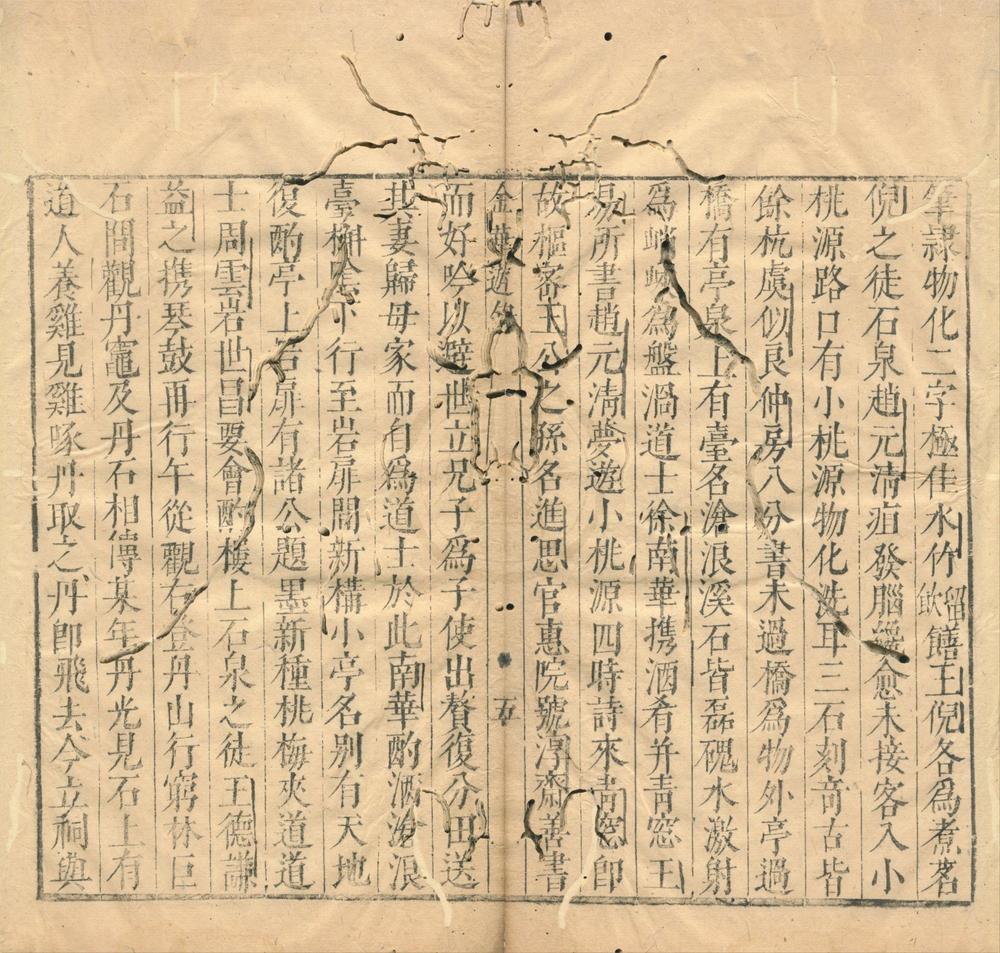 筆隷物化二字極佳水竹留飲饍王倪各爲煮茗
倪之徒石泉趙元清疽發腦纔愈未接客入小
桃源路口有小桃源物化洗耳三石刻竒古皆
餘杭虞似良仲房八分書未過橋爲物外亭過
橋有亭泉上有臺名滄浪溪石皆磊磈水激射
爲爲盤渦道士徐南華携酒肴并青窓王
易所書趙元清夢遊小桃源四時詩來青窓即
故樞密王公之孫名進思官惠院號淳齋善書
金華遊録
五
而好吟以避世立兄子爲子使出贅復分田送
其妻歸母家而自爲道士於此南華酌酒滄浪
臺榭下行至岩扉關新構小亭名别有天地
復酌亭上岩扉有諸公題墨新種桃梅夾道道
士周雲岩世昌要會酌樓上石泉之徒王德謙
益之携琴鼓再行午從觀右登丹山行窮林巨
石間觀丹竈及丹石相傳某年丹光見石上有
道人養雞見雞啄丹取之丹即飛去今立祠與